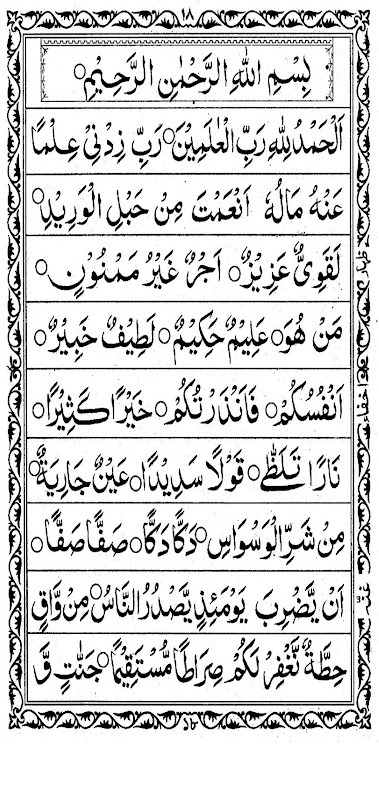 ١٨
بِسْمِ اللهِ الرَّحْمٰنِ الرَّحِيْمِ○
اَلْحَمْدُ لِلّٰهِ رَبِّ الْعٰلَمِيْنَ○ رَبِّ زِدْنِيْ عِلْمًا
عَنْهُ مَالُهٗ اَنْعَمْتَ مِنْ حَبْلِ الْوَرِيْدِ○
لَقَوِيٌّ عَزِيْزٌ○ اَجْرٌ غَيْرُ مَمْنُوْنٍ○
مَنْ هُوَ○ عَلِيْمٌ حَكِيْمٌ○ لَطِيْفٌ خَبِيْرٌ○
اَنْفُسُكُمْ○ فَاَنْذَرْتُكُمْ○ خَيْرًا كَثِيْرًا○
نَارًا تَلَظّٰى○ قَوْلًا سَدِيْدًا○ عَيْنٌ جَارِيَةٌ○
مِنْ شَرِّ الْوَسْوَاسِ○ دَكًّا دَكًّا○ صَفًّا صَفًّا○
اَنْ يَّضْرِبَ يَوْمَئِذٍ يَّصْدُرُ النَّاسُ○ مِنْ وَّاقٍ
حِطَّةٌ نَّغْفِرْ لَكُمْ صِرَاطًا مُّسْتَقِيْمًا○ جَنّٰتٍ وَّ